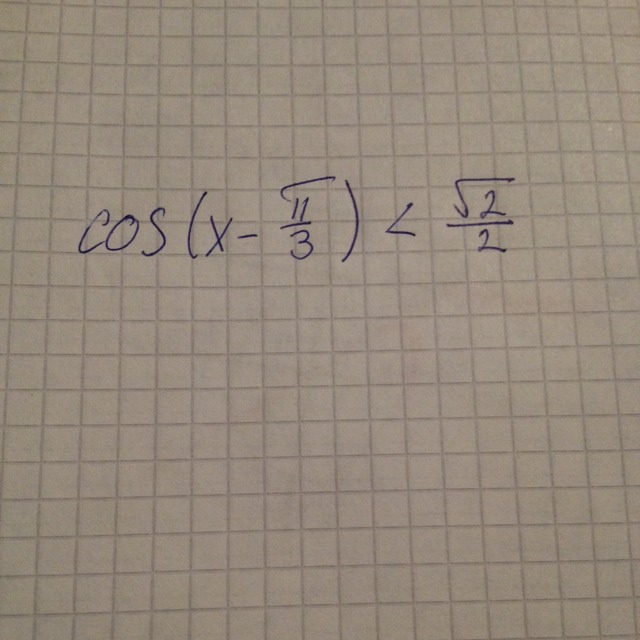 cos(x - π/3) < √2/2